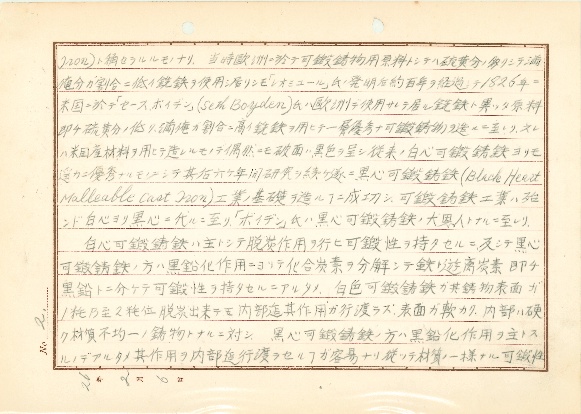 Iron)ト稱セラルルモノナリ. 当時歐洲ニ於テ可鍛鋳物用原料トシテハ硫黄分ノ多クシテ満
俺分ガ割合ニ低イ銑鉄ヲ使用シ居リシモ「レオミュール」氏ノ発明后約百年ヲ経過シテ1826年ニ
米国ニ於テ「セース、ボイデン」(Seth Boyden)氏ハ歐洲デ使用サレテ居ル銑鉄ト異ツタ原料
即チ硫黄分ノ低ク、満俺ガ割合ニ高イ銑鉄ヲ用ヒテ一層優秀ナ可鍛鋳物ヲ造ルニ至レリ. スレ
ハ米国産材料ヲ用ヒテ造レルモノデ偶然ニモ破面ハ黒色ヲ呈シ從来ノ白心可鍛鋳鉄ヨリモ
遥カニ優秀ナルモノニシテ其后六ケ年間研究ヲ続ケ遂ニ黒心可鍛鋳鉄(Black Heart
Malleable Cast Iron)工業ノ基礎ヲ造ルコトニ成功シ、可鍛鋳鉄工業ハ殆
ンド白心ヨリ黒心ニ代ルニ至リ.「ボイデン」氏ハ黒心可鍛鋳鉄ノ大恩人トナルニ至レリ.
白心可鍛鋳鉄ハ主トシテ脱炭作用ヲ行ヒ可鍛性ヲ持タセルニ反シテ黒心
可鍛鋳鉄ノ方ハ黒鉛化作用ニヨツテ化合炭素ヲ分解シテ鉄ト遊離炭素即チ
黒鉛トニ分ケテ可鍛性ヲ持タセルニアルタメ. 白色可鍛鋳鉄ガ其鋳物表面ガ
1粍乃至2粍位脱炭出来テモ内部迄其作用ガ行渡ラズ、表面ガ軟カク. 内部ハ硬
ク材質不均一ノ鋳物トナルニ対シ 黒心可鍛鋳鉄ノ方ハ黒鉛化作用ヲ主トス
ルノデアルタメ其作用ヲ内部迄行渡ラセルコトガ容易ナリ. 從ツテ材質ノ一様ナル可鍛性
No. 2.
26 年 2 月 6 日